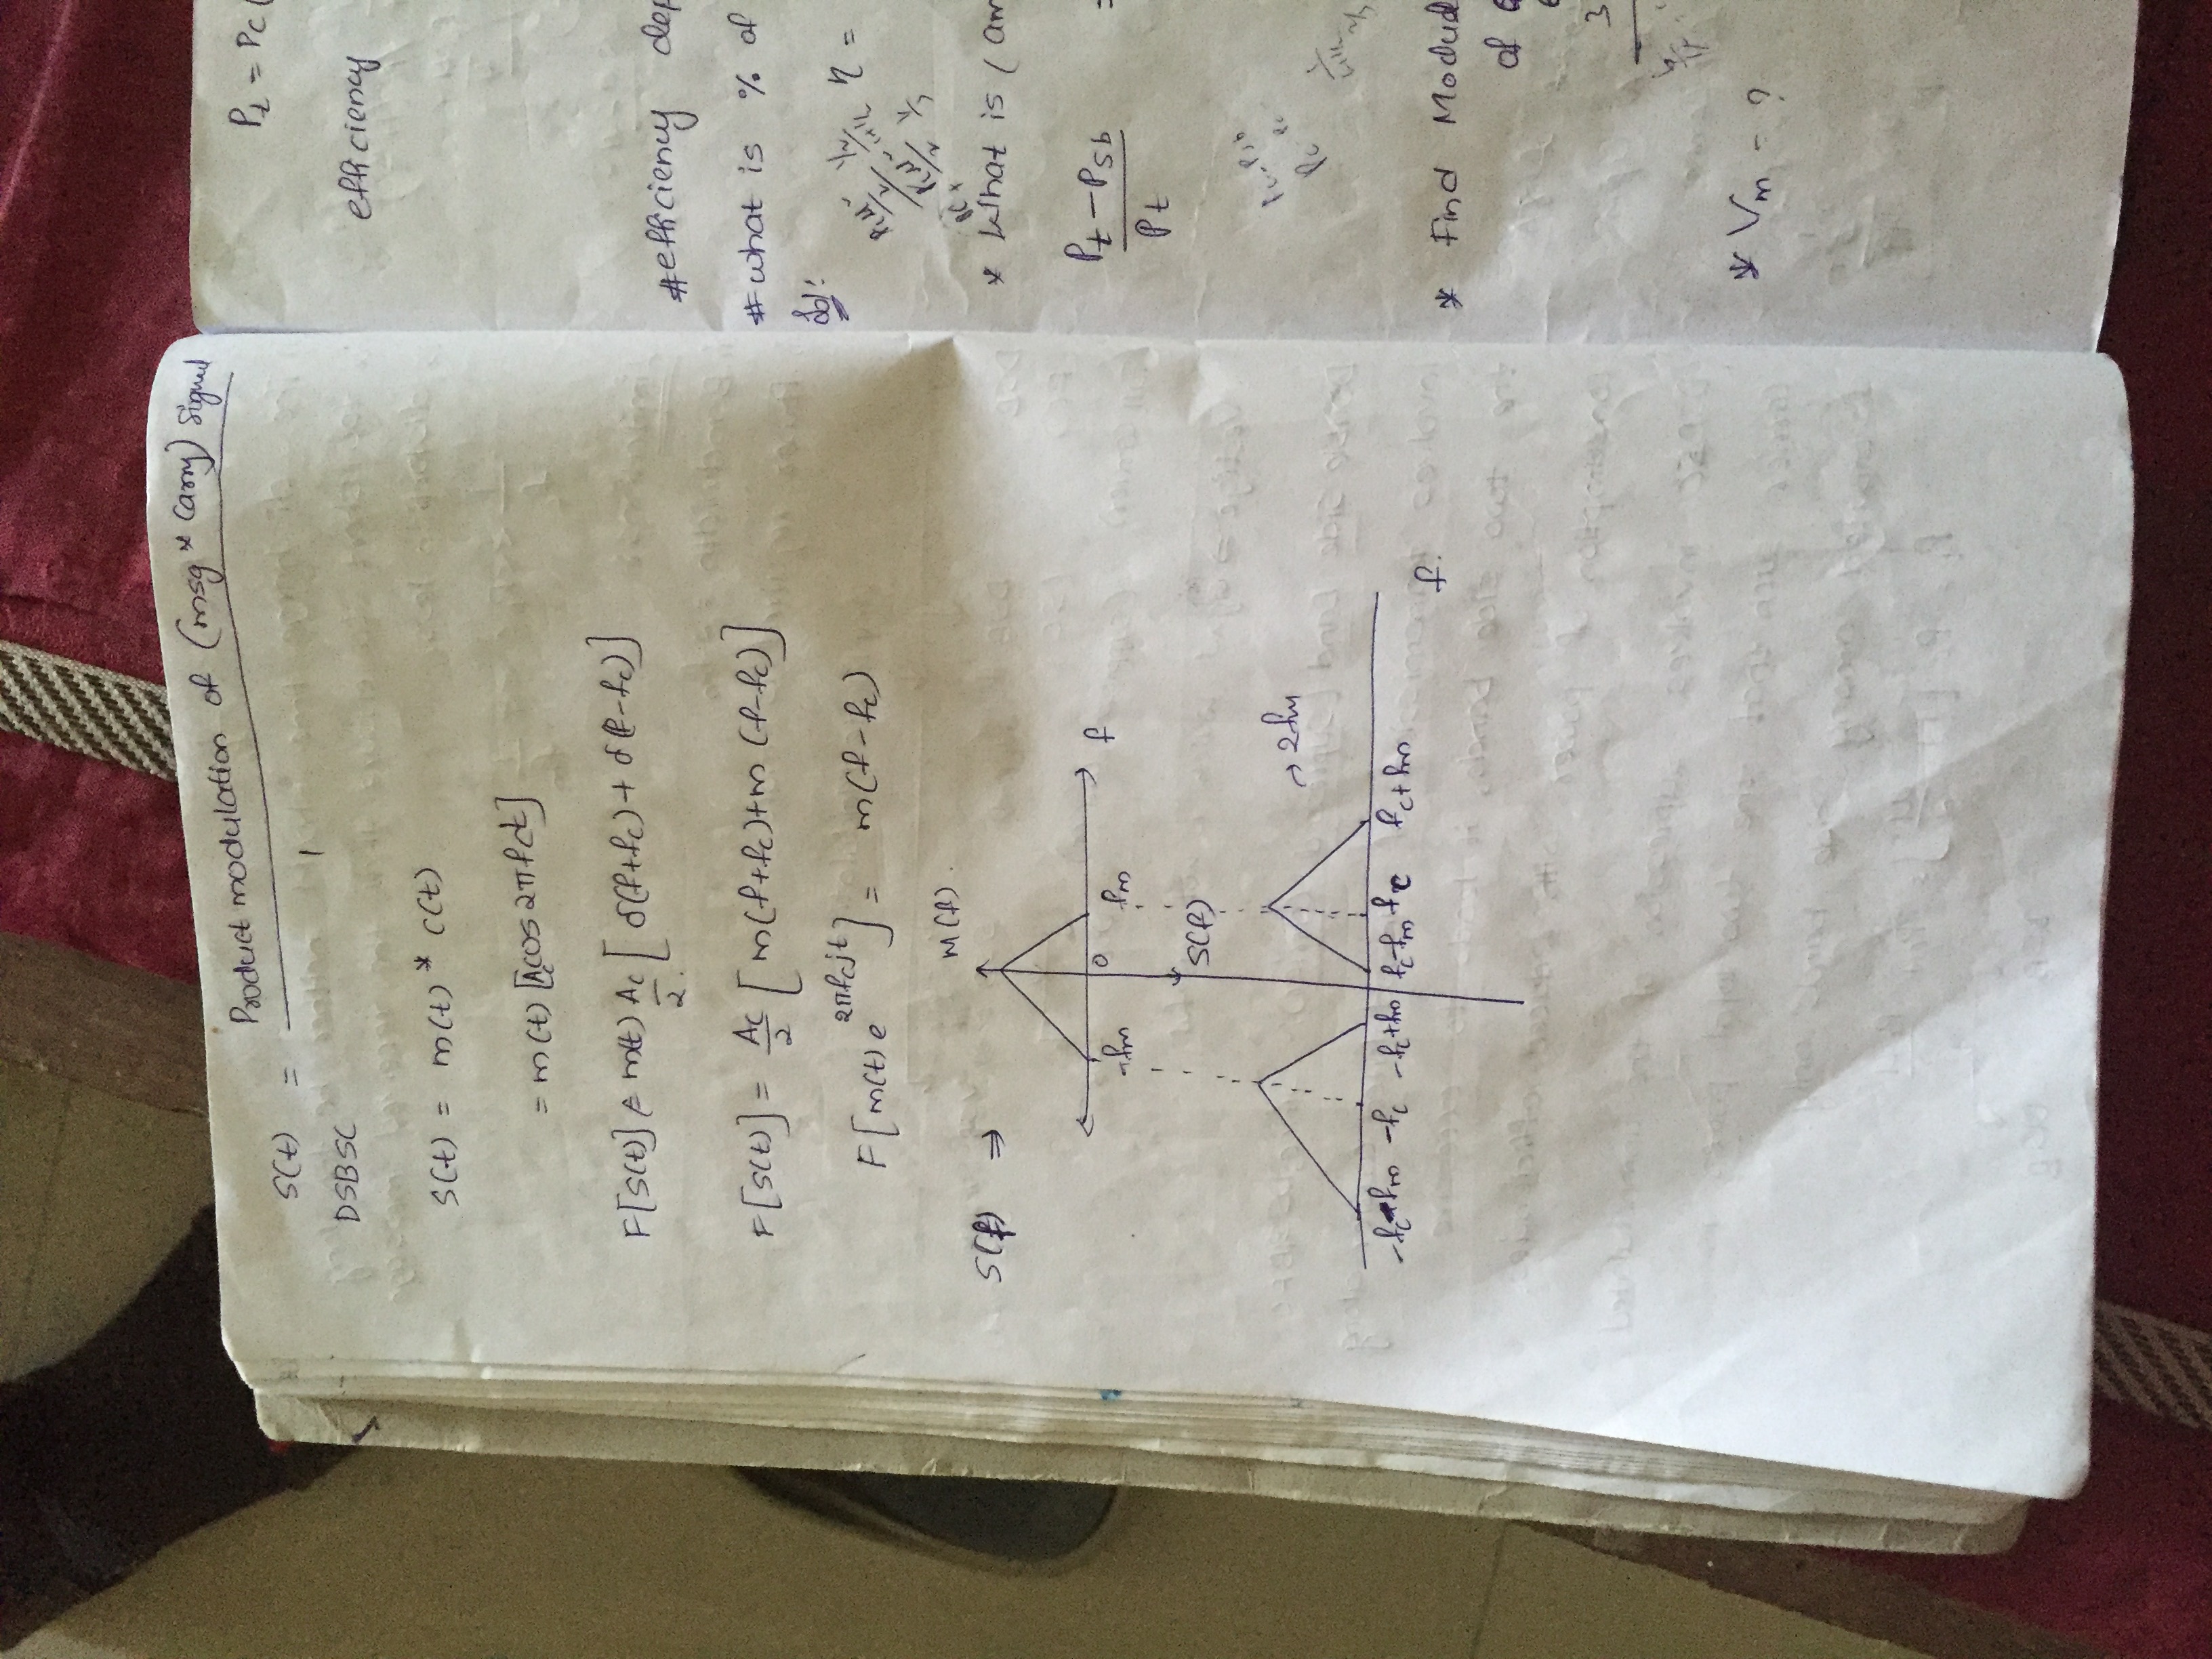 Product modulation of (msg * Carry) Signal
S(t) =
DSBSC
S(t) = m(t) * c(t)
= m(t) [Ac cos 2πfct]
F[S(t)] = m(t) Ac/2 [δ(f+fc) + δ(f-fc)]
F[S(t)] = Ac/2 [m(f+fc)+m (f-fc)]
F[m(t) e^2πfcjt] = m(f-fc)
M(f).
S(f) ⇒
-fm 0 fm f
S(f)
→ 2fm
-fc-fm -fc -fc+fm fc-fm fc fc+fm
f.
Pt = Pc (
efficiency
#efficiency dep
# what is % of
Sol:
η =
* What is (am
Pt - Psb / Pt =
* Find Modul
of
3
* Vm = ?